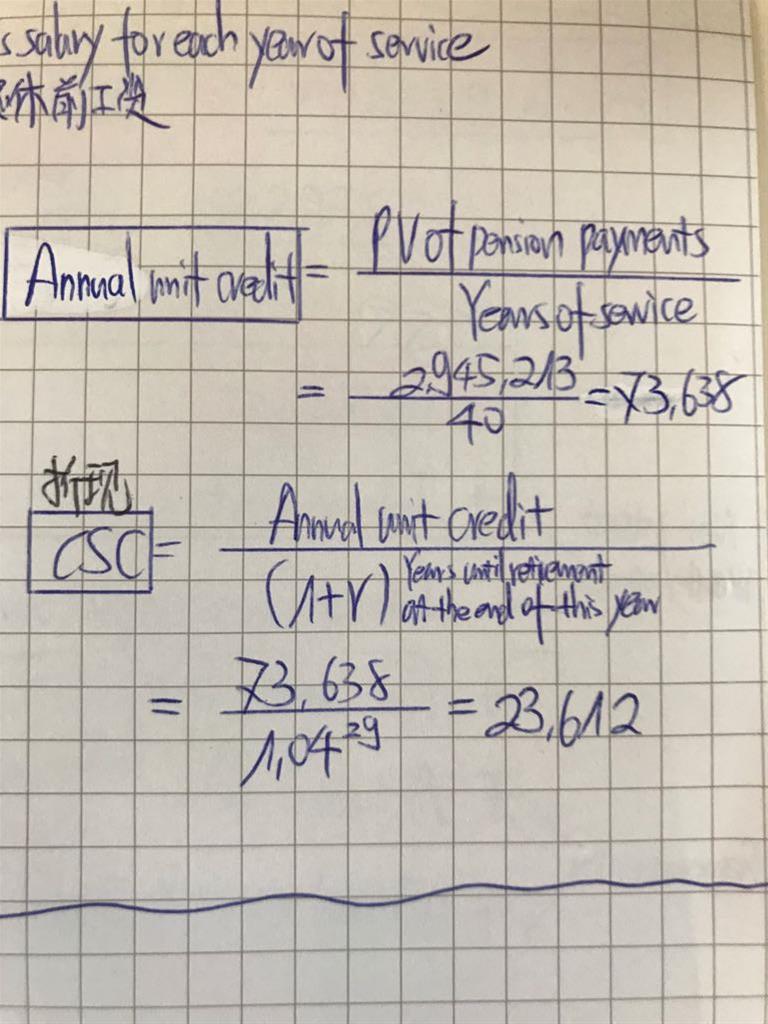 s salary for each year of service
休前工资
Annual unit credit = PV of pension payments
Years of service
= 2,945,213 / 40 = 73,638
折现
CSC = Annual unit credit
(1+r) Years until retirement
at the end of this year
= 73,638 / 1,04^29 = 23,612